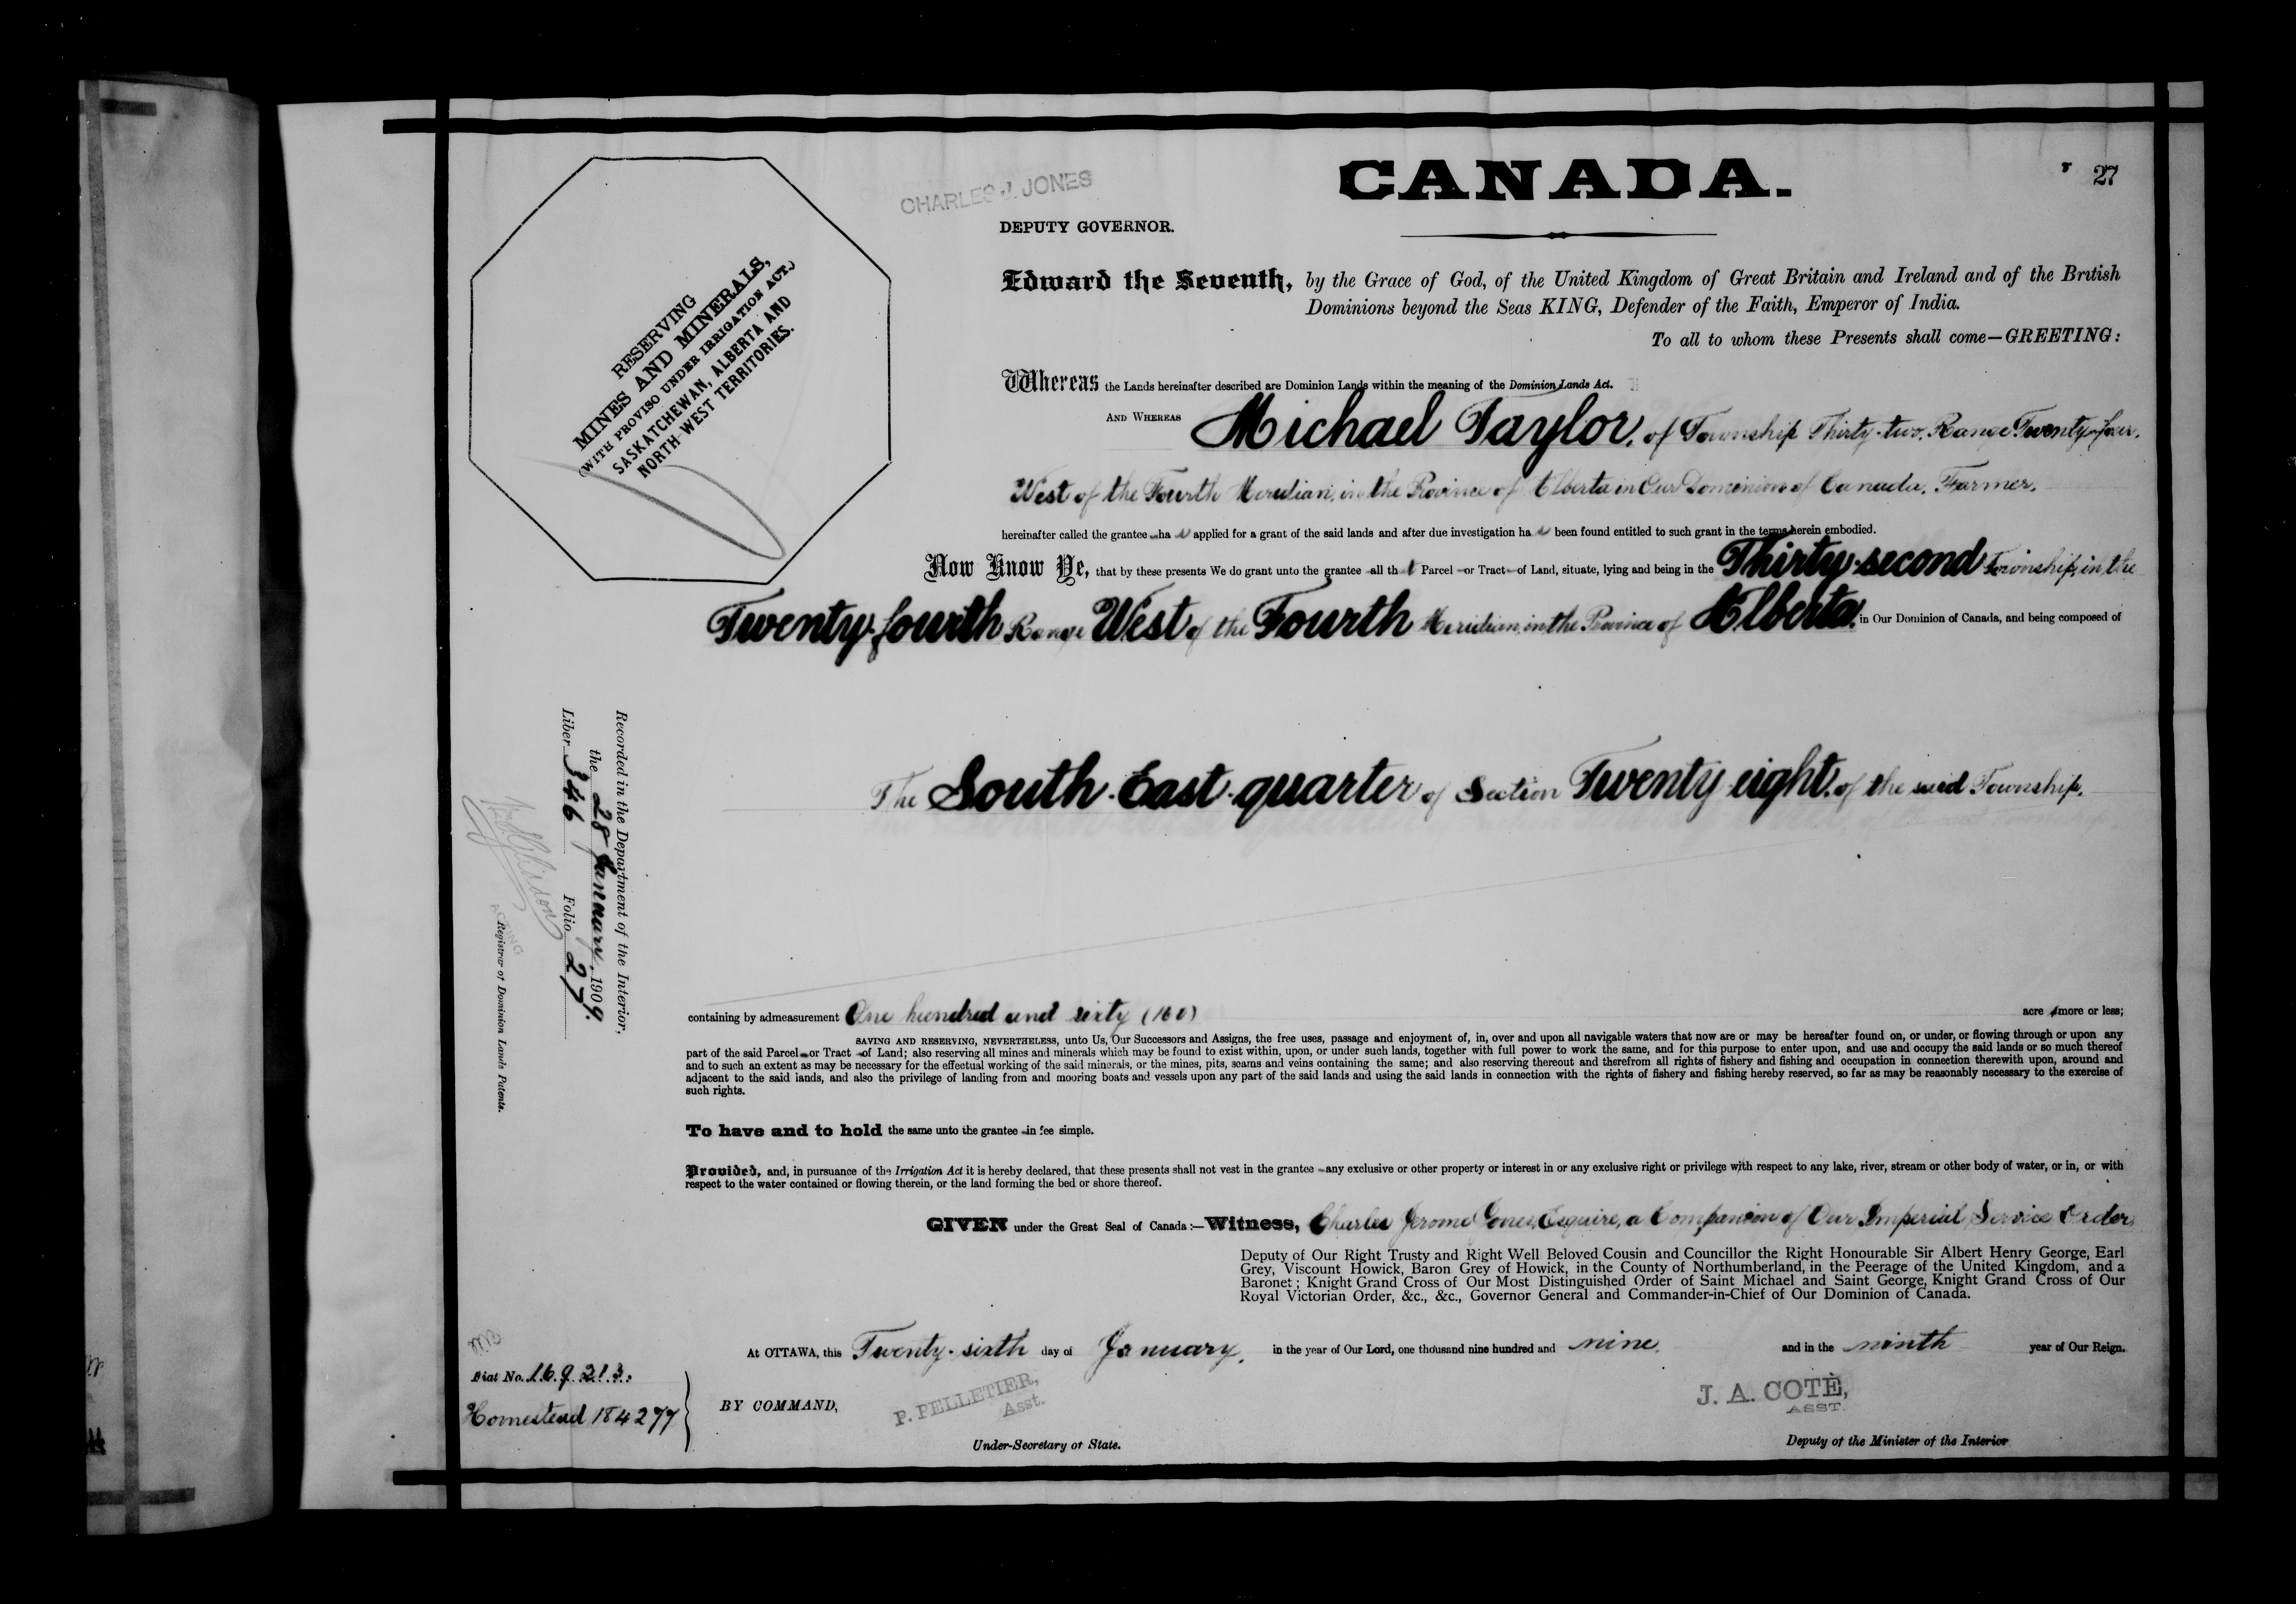 CANADA.
27
CHARLES J. JONES
DEPUTY GOVERNOR.
RESERVING
MINES AND MINERALS,
(WITH PROVISO UNDER IRRIGATION ACT.)
SASKATCHEWAN, ALBERTA AND
NORTH-WEST TERRITORIES.
Edward the Seventh, by the Grace of God, of the United Kingdom of Great Britain and Ireland and of the British
Dominions beyond the Seas KING, Defender of the Faith, Emperor of India.
To all to whom these Presents shall come—GREETING:
Whereas the Lands hereinafter described are Dominion Lands within the meaning of the Dominion Lands Act.
AND WHEREAS Michael Taylor, of Township Thirty-two, Range Twenty-four,
West of the Fourth Meridian, in the Province of Alberta in Our Dominion of Canada, Farmer,
hereinafter called the grantee ha s applied for a grant of the said lands and after due investigation ha s been found entitled to such grant in the terms herein embodied.
Now Know Ye, that by these presents We do grant unto the grantee all th t Parcel or Tract of Land, situate, lying and being in the Thirty-second Township, in the
Twenty-fourth Range West of the Fourth Meridian, in the Province of Alberta, in Our Dominion of Canada, and being composed of
The South-East-quarter of Section Twenty-eight, of the said Township,
containing by admeasurement One hundred and sixty (160) acre s more or less;
SAVING AND RESERVING, NEVERTHELESS, unto Us, Our Successors and Assigns, the free uses, passage and enjoyment of, in, over and upon all navigable waters that now are or may be hereafter found on, or under, or flowing through or upon any
part of the said Parcel or Tract of Land; also reserving all mines and minerals which may be found to exist within, upon, or under such lands, together with full power to work the same, and for this purpose to enter upon, and use and occupy the said lands or so much thereof
and to such an extent as may be necessary for the effectual working of the said minerals, or the mines, pits, seams and veins containing the same; and also reserving thereout and therefrom all rights of fishery and fishing and occupation in connection therewith upon, around and
adjacent to the said lands, and also the privilege of landing from and mooring boats and vessels upon any part of the said lands and using the said lands in connection with the rights of fishery and fishing hereby reserved, so far as may be reasonably necessary to the exercise of
such rights.
To have and to hold the same unto the grantee in fee simple.
Provided, and, in pursuance of the Irrigation Act it is hereby declared, that these presents shall not vest in the grantee any exclusive or other property or interest in or any exclusive right or privilege with respect to any lake, river, stream or other body of water, or in, or with
respect to the water contained or flowing therein, or the land forming the bed or shore thereof.
GIVEN under the Great Seal of Canada:—Witness, Charles Jerome Jones, Esquire, a Companion of Our Imperial Service Order,
Deputy of Our Right Trusty and Right Well Beloved Cousin and Councillor the Right Honourable Sir Albert Henry George, Earl
Grey, Viscount Howick, Baron Grey of Howick, in the County of Northumberland, in the Peerage of the United Kingdom, and a
Baronet; Knight Grand Cross of Our Most Distinguished Order of Saint Michael and Saint George, Knight Grand Cross of Our
Royal Victorian Order, &c., &c., Governor General and Commander-in-Chief of Our Dominion of Canada.
At OTTAWA, this Twenty-sixth day of January, in the year of Our Lord, one thousand nine hundred and nine, and in the ninth year of Our Reign.
BY COMMAND,
P. PELLETIER,
Asst.
Under-Secretary of State.
J. A. COTÉ,
ASST.
Deputy of the Minister of the Interior
Recorded in the Department of the Interior,
the 28 January, 1909.
Liber 346 Folio 27
ACTING
Registrar of Dominion Lands Patents.
Fiat No. 169213.
Homestead 184277